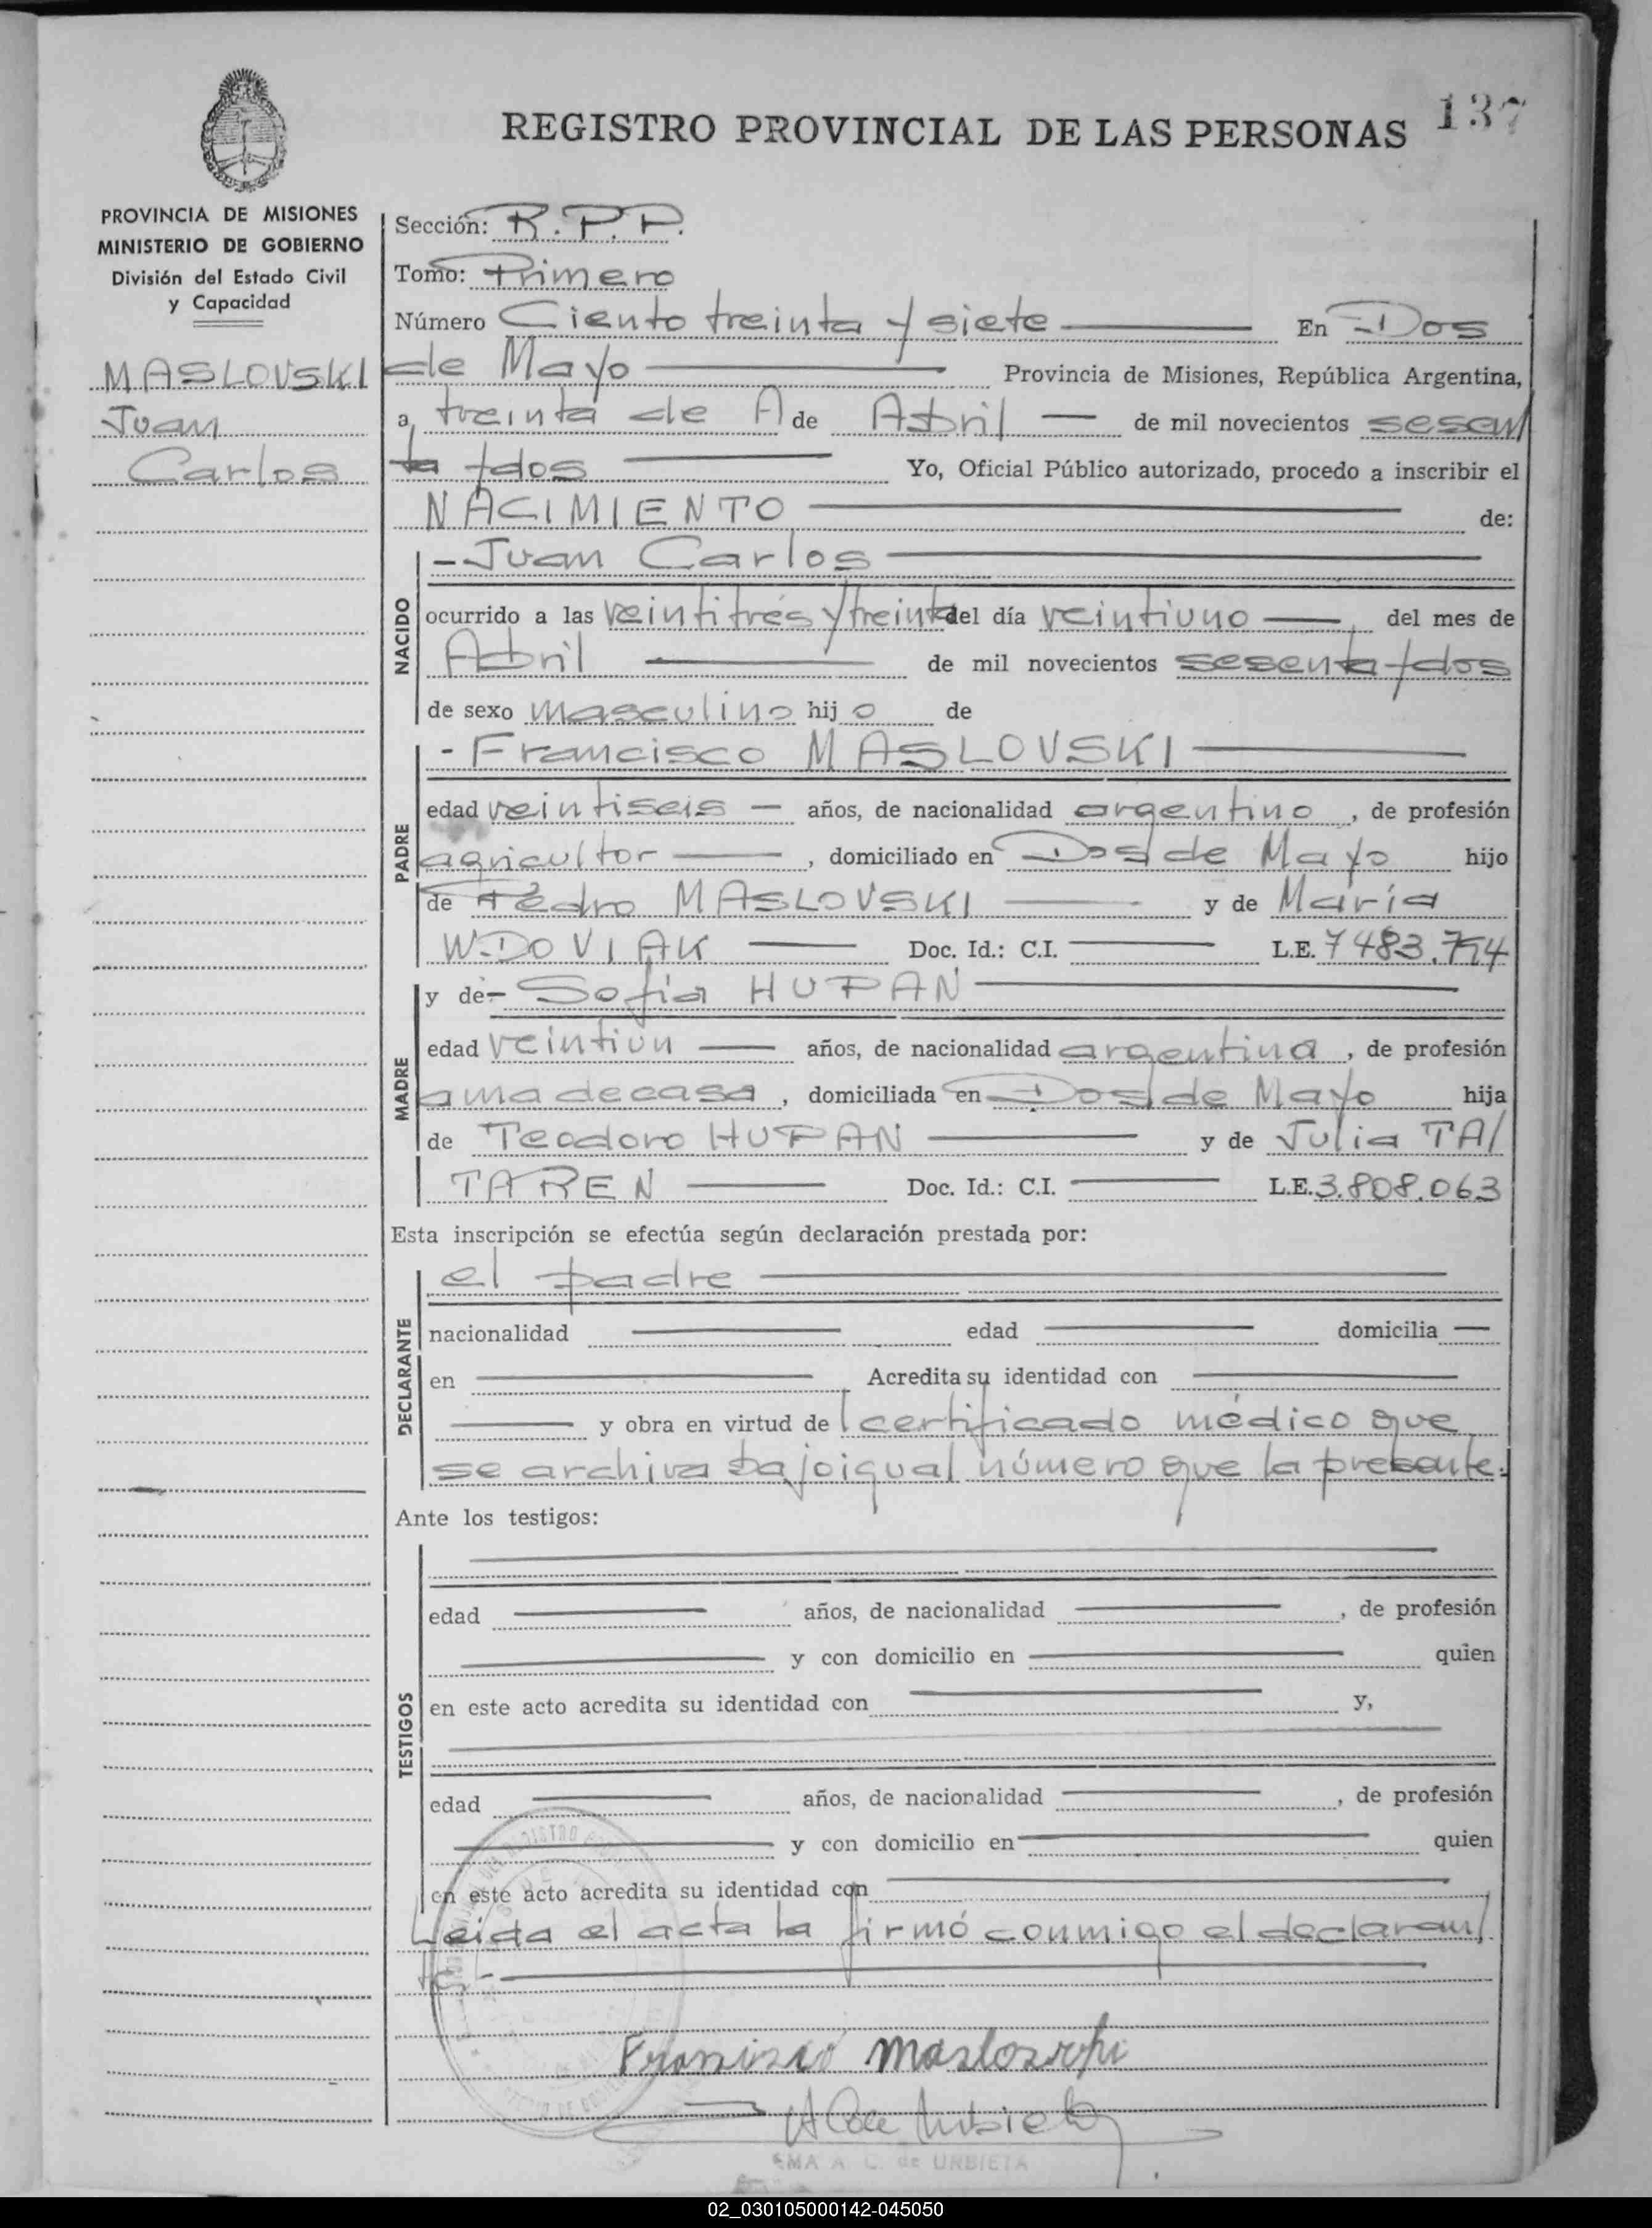 137
REGISTRO PROVINCIAL DE LAS PERSONAS
PROVINCIA DE MISIONES
MINISTERIO DE GOBIERNO
División del Estado Civil
y Capacidad
MASLOVSKI
Juan
Carlos
Sección: R.P.P.
Tomo: Primero
Número Ciento treinta y siete En Dos
de Mayo Provincia de Misiones, República Argentina,
a treinta de A de Abril de mil novecientos sesen/
ta y dos Yo, Oficial Público autorizado, procedo a inscribir el
NACIMIENTO de:
NACIDO
- Juan Carlos
ocurrido a las veintitrés y treinta del día veintiuno del mes de
Abril de mil novecientos sesenta y dos
de sexo masculino hijo de
PADRE
- Francisco MASLOVSKI
edad veintiseis años, de nacionalidad argentino, de profesión
agricultor, domiciliado en Dos de Mayo hijo
de Pedro MASLOVSKI y de María
WDOVIAK Doc. Id.: C.I. L.E. 7483.794
MADRE
y de- Sofía HUPAN
edad veintiun años, de nacionalidad argentina, de profesión
ama de casa, domiciliada en Dos de Mayo hija
de Teodoro HUPAN y de Julia TA/
TAREN Doc. Id.: C.I. L.E. 3.808.063
Esta inscripción se efectúa según declaración prestada por:
DECLARANTE
el padre
nacionalidad edad domicilia
en Acredita su identidad con
y obra en virtud de l certificado médico que
se archiva bajo igual número que la presente.
Ante los testigos:
TESTIGOS
edad años, de nacionalidad , de profesión
y con domicilio en quien
en este acto acredita su identidad con y,
edad años, de nacionalidad , de profesión
y con domicilio en quien
en este acto acredita su identidad con
Leida el acta la firmó conmigo el declaran/
te.-
Francisco Maslovski
A C de Urbieta
EMA A. C. de URBIETA
02_030105000142-045050